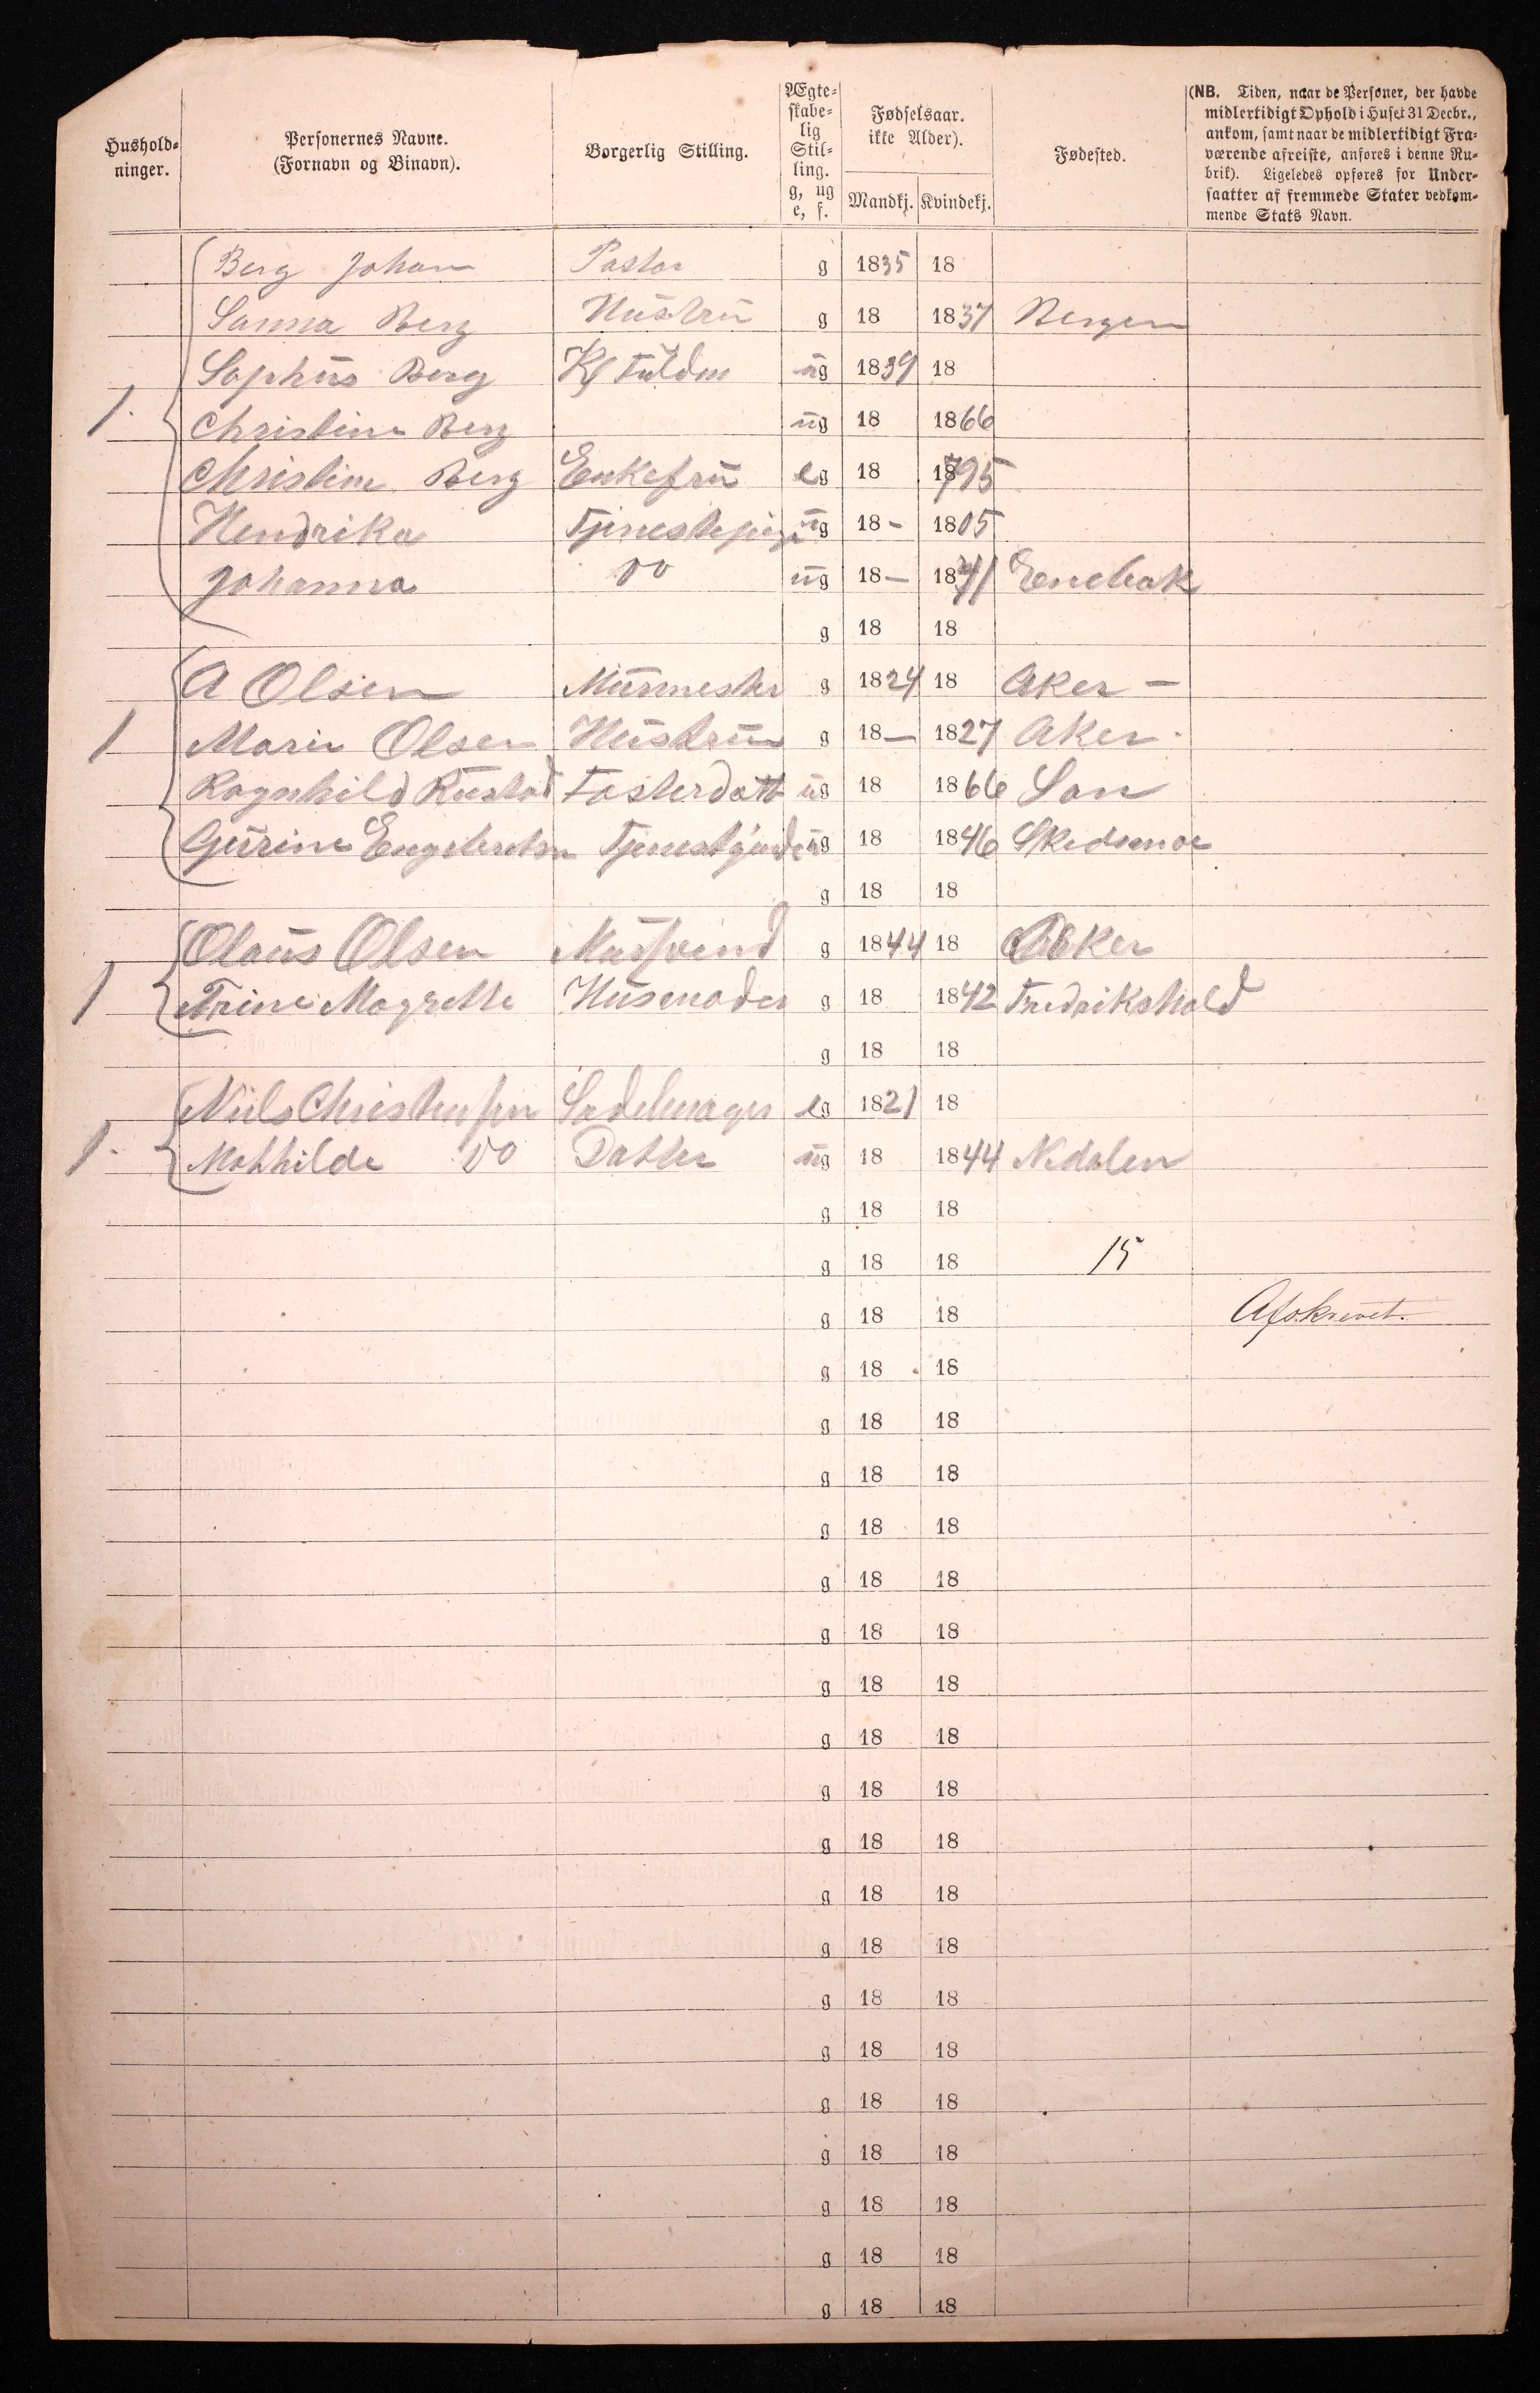 Hushold-
ninger.
Personernes Navne.
(Fornavn og Binavn).
Borgerlig Stilling.
Ægte-
skabe-
lig
Stil-
ling.
g, ug
e, f.
Fødselsaar.
ikke Alder).
Mandkj. Kvindekj.
Fødested.
(NB. Tiden, naar de Personer, der havde
midlertidigt Ophold i Huset 31 Decbr.,
ankom, samt naar de midlertidigt Fra-
værende afreiste, anføres i denne Ru-
brik). Ligeledes opføres for Under-
saatter af fremmede Stater vedkom-
mende Stats Navn.
Berg Johan Pastor g 1835 18
Sanna Berg Hüstrü g 18 1837 Bergen
Sophüs Berg üg 1839 18
1. Christine Berg üg 18 1866
Christine Berg Enkefrü eg 18 1795
Hendrika Tjenestepige üg 18- 1805
Johanna Do üg 18- 1841 Enebak
g 18 18
A Olsen Mürmester g 1824 18 Aker -
1 Marie Olsen Hüstrü g 18- 1827 Aker.
Ragnhild Rüstad Fosterdatt üg 18 1866 Son
Gürine Engebretsen üg 18 1846 Skedsmoe
g 18 18
Olaüs Olsen g 1844 18 Aker
1 Trine Magrethe Hüsmoder g 18 1842 Fredrikshald
g 18 18
Niels Christensen Sadelmager eg 1821 18
1. Mathilde Do Datter üg 18 1844 Nedalen
g 18 18
g 18 18 15
g 18 18 Afskrevet.
g 18 18
g 18 18
g 18 18
g 18 18
g 18 18
g 18 18
g 18 18
g 18 18
g 18 18
g 18 18
g 18 18
g 18 18
g 18 18
g 18 18
g 18 18
g 18 18
g 18 18
g 18 18
g 18 18